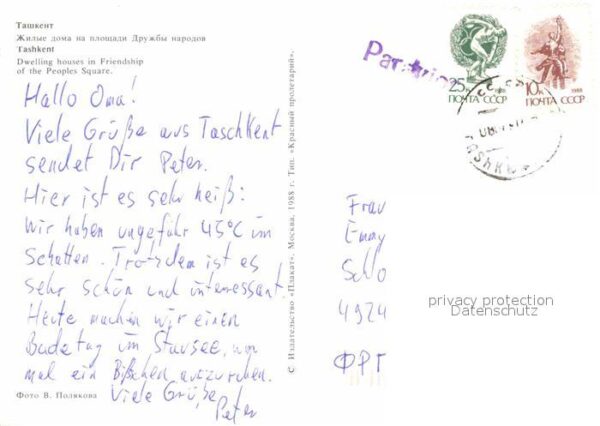 Ташкент
Жилые дома на площади Дружбы народов
Tashkent
Dwelling houses in Friendship
of the Peoples Square.
Hallo Oma!
Viele Grüße aus Taschkent
sendet Dir Peter.
Hier ist es sehr heiß:
Wir haben ungefähr 45°C im
Schatten. Trotzdem ist es
sehr schön und interessant.
Heute machen wir einen
Badetag im Stausee, um
mal ein Bißchen auszuruhen.
Viele Grüße
Peter
Фото В. Полякова
© Издательство «Плакат». Москва. 1988 г. Тип. «Красный пролетарий».
Par avion
25к
1988
ПОЧТА СССР
10к
1988
ПОЧТА СССР
Frau
Emmy
Schlo
4924
ФРГ
privacy protection
Datenschutz